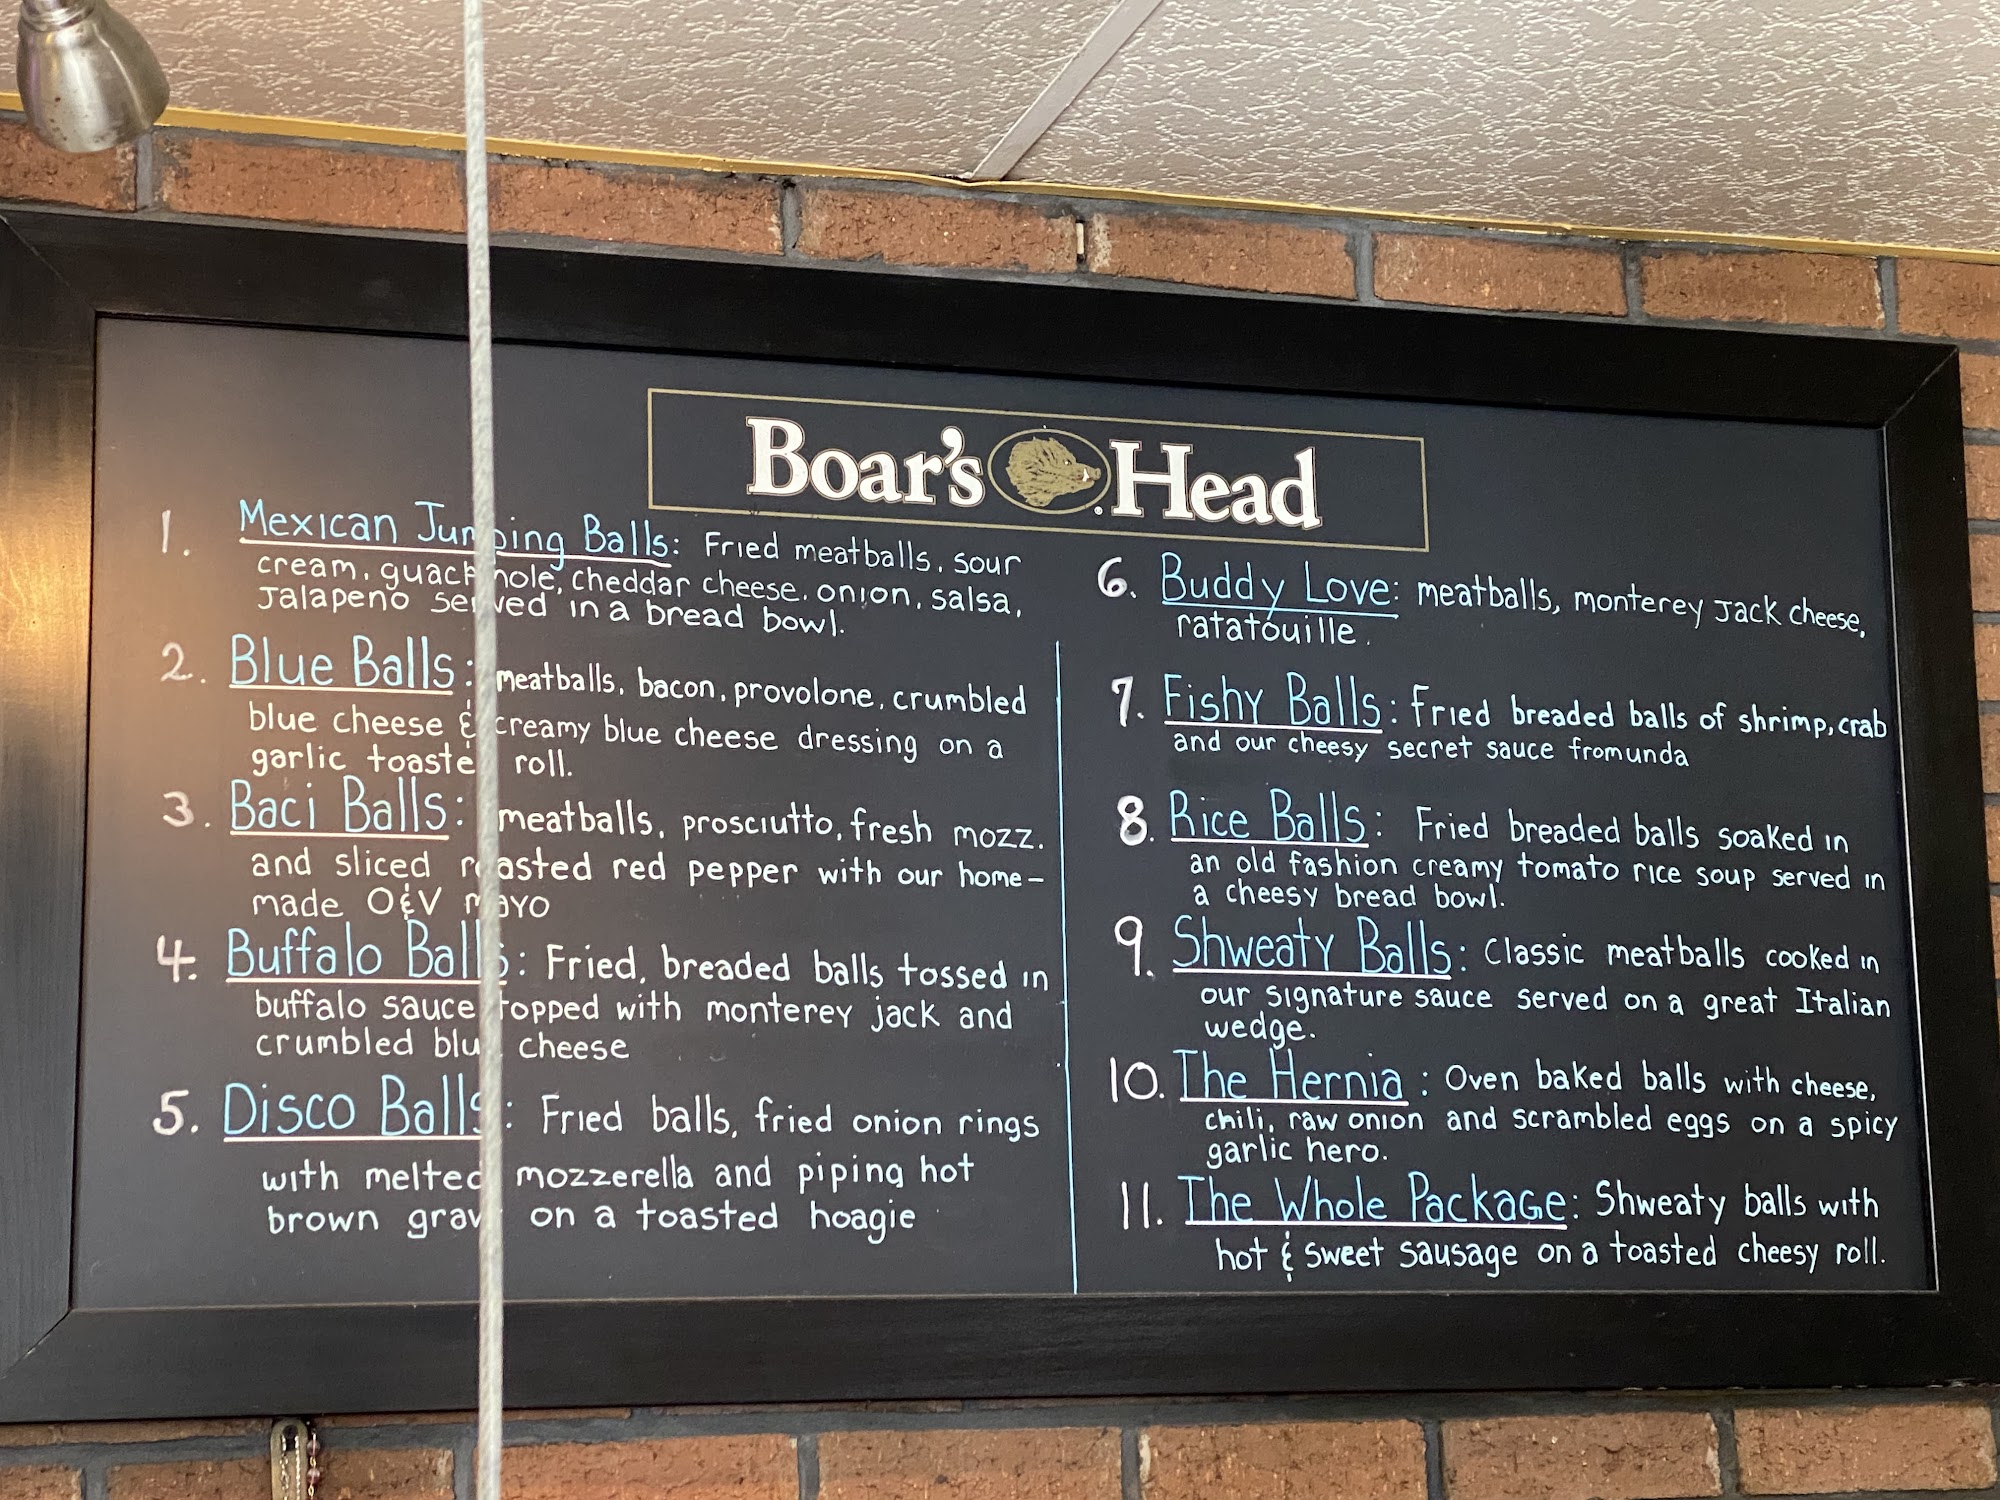 Boar's Head
1. Mexican Jumping Balls: Fried meatballs, sour
cream, guacamole, cheddar cheese, onion, salsa,
Jalapeno served in a bread bowl.
2. Blue Balls: meatballs, bacon, provolone, crumbled
blue cheese & creamy blue cheese dressing on a
garlic toasted roll.
3. Baci Balls: meatballs, prosciutto, fresh mozz.
and sliced roasted red pepper with our home-
made O&V mayo
4. Buffalo Balls: Fried, breaded balls tossed in
buffalo sauce topped with monterey jack and
crumbled blue cheese
5. Disco Balls: Fried balls, fried onion rings
with melted mozzerella and piping hot
brown gravy on a toasted hoagie
6. Buddy Love: meatballs, monterey Jack cheese,
ratatouille.
7. Fishy Balls: Fried breaded balls of shrimp, crab
and our cheesy secret sauce fromunda
8. Rice Balls: Fried breaded balls soaked in
an old fashion creamy tomato rice soup served in
a cheesy bread bowl.
9. Shweaty Balls: Classic meatballs cooked in
our signature sauce served on a great Italian
wedge.
10. The Hernia: Oven baked balls with cheese,
chili, raw onion and scrambled eggs on a spicy
garlic hero.
11. The Whole Package: Shweaty balls with
hot & sweet sausage on a toasted cheesy roll.